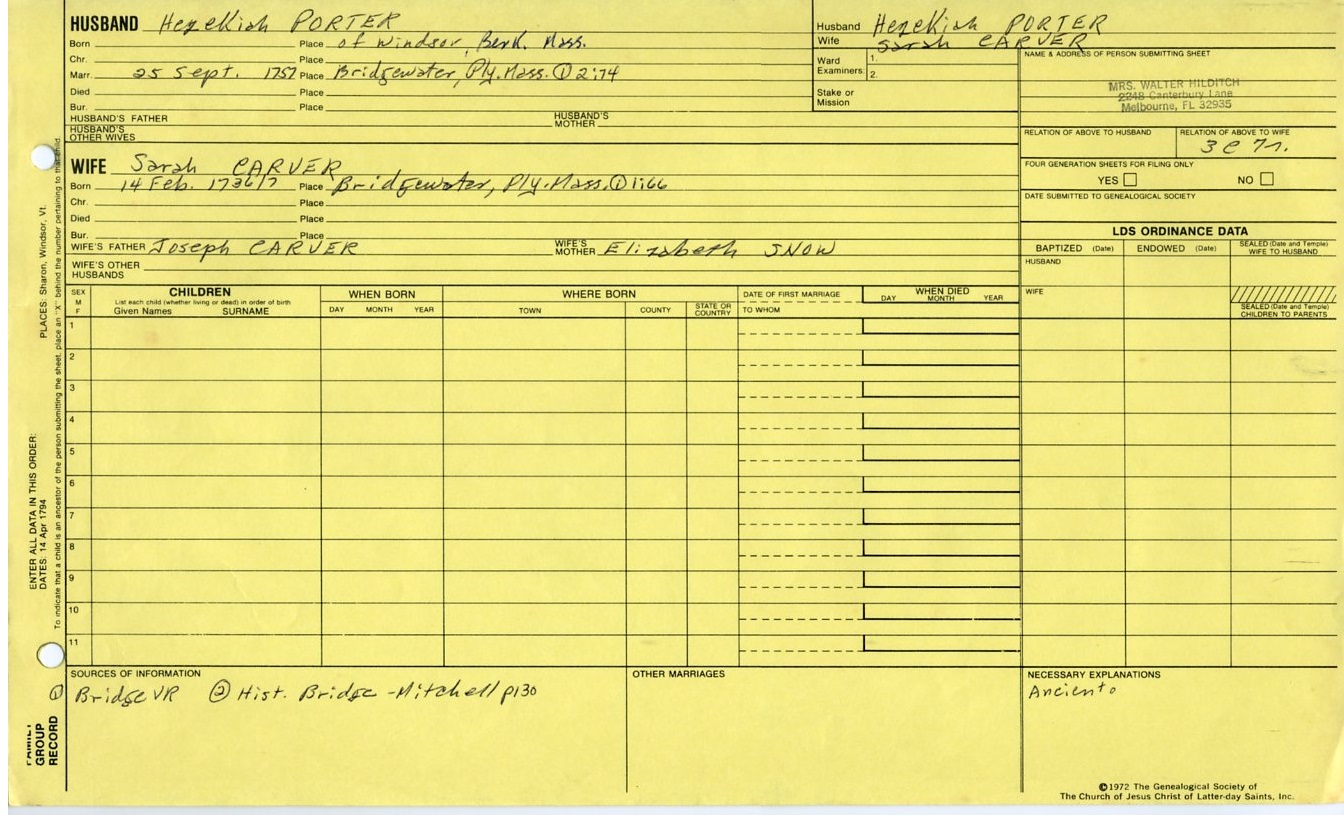 HUSBAND Hezekiah PORTER
Born Place of Windsor, Berk. Mass.
Chr. Place
Marr. 25 Sept. 1757 Place Bridgewater, Ply. Mass. ① 2:74
Died Place
Bur. Place
HUSBAND'S FATHER HUSBAND'S MOTHER
HUSBAND'S OTHER WIVES
Husband Hezekiah PORTER
Wife Sarah CARVER
Ward Examiners: 1.
2.
Stake or Mission
NAME & ADDRESS OF PERSON SUBMITTING SHEET
MRS. WALTER HILDITCH
2248 Canterbury Lane
Melbourne, FL 32935
RELATION OF ABOVE TO HUSBAND RELATION OF ABOVE TO WIFE
3 C 7r.
FOUR GENERATION SHEETS FOR FILING ONLY
YES NO
DATE SUBMITTED TO GENEALOGICAL SOCIETY
WIFE Sarah CARVER
Born 14 Feb. 1736/7 Place Bridgewater, Ply. Mass. ① 1:66
Chr. Place
Died Place
Bur. Place
WIFE'S FATHER Joseph CARVER WIFE'S MOTHER Elizabeth SNOW
WIFE'S OTHER HUSBANDS
LDS ORDINANCE DATA
BAPTIZED (Date) ENDOWED (Date) SEALED (Date and Temple) WIFE TO HUSBAND
HUSBAND
WIFE
SEALED (Date and Temple) CHILDREN TO PARENTS
SEX M F
CHILDREN
List each child (whether living or dead) in order of birth
Given Names SURNAME
WHEN BORN
DAY MONTH YEAR
WHERE BORN
TOWN COUNTY STATE OR COUNTRY
DATE OF FIRST MARRIAGE
TO WHOM
WHEN DIED
DAY MONTH YEAR
1
2
3
4
5
6
7
8
9
10
11
SOURCES OF INFORMATION
① Bridge VR ② Hist. Bridge - Mitchell p130
OTHER MARRIAGES
NECESSARY EXPLANATIONS
Ancient
©1972 The Genealogical Society of
The Church of Jesus Christ of Latter-day Saints, Inc.
ENTER ALL DATA IN THIS ORDER:
DATES: 14 Apr 1794
PLACES: Sharon, Windsor, Vt.
To indicate that a child is an ancestor of the person submitting the sheet, place an "X" behind the number pertaining to that child.
FAMILY GROUP RECORD